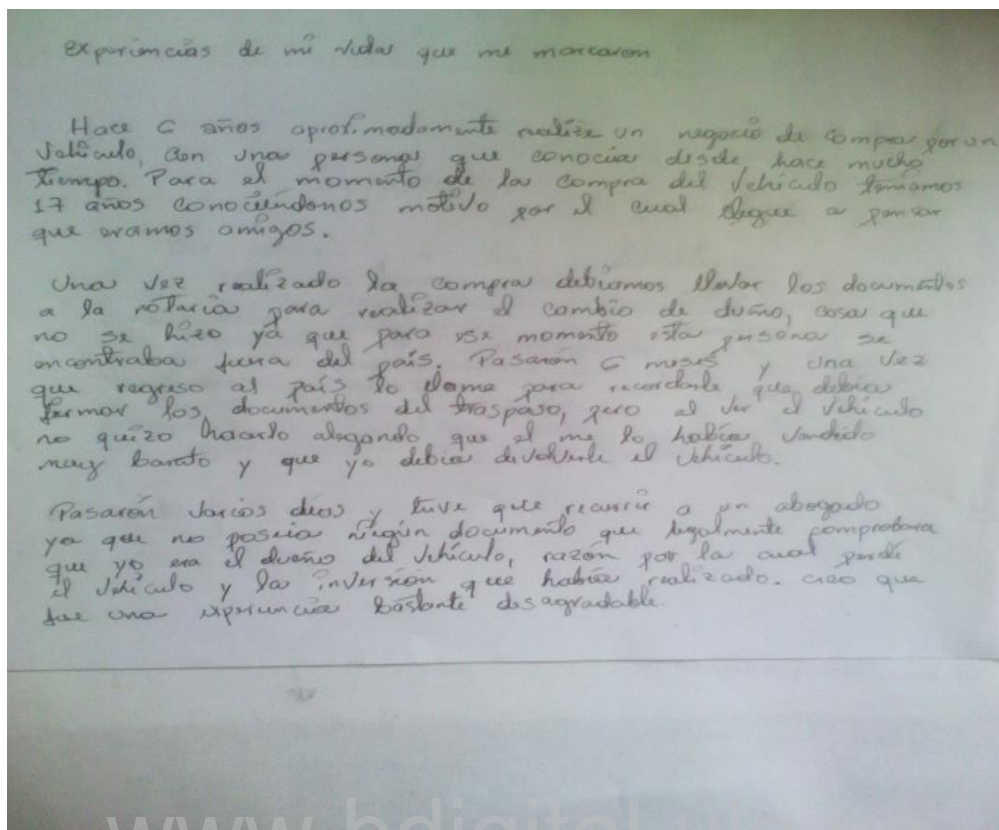 experiencias de mi vida que me marcaron
Hace 6 años aproximadamente realize un negocio de compra por un
Vehículo, con una persona que conocia desde hace mucho
tiempo. Para el momento de la compra del Vehículo teniamos
17 años conociéndonos motivo por el cual llegue a pensar
que eramos amigos.
Una vez realizado la compra debiamos llevar los documentos
a la notaria para realizar el cambio de dueño, cosa que
no se hizo ya que para ese momento esta persona se
encontraba fuera del país. Pasarón 6 meses y una vez
que regreso al país lo llame para recordarle que debia
firmar los documentos del traspaso, pero al ver el vehículo
no quizo hacerlo alegando que el me lo había vendido
muy barato y que yo debia devolverle el vehículo.
Pasarón varios dias y tuve que recurrir a un abogado
ya que no poseia ningún documento que legalmente comprobara
que yo era el dueño del vehículo, razón por la cual perdi
el vehículo y la inversión que habia realizado. creo que
fue una experiencia bastante desagradable.